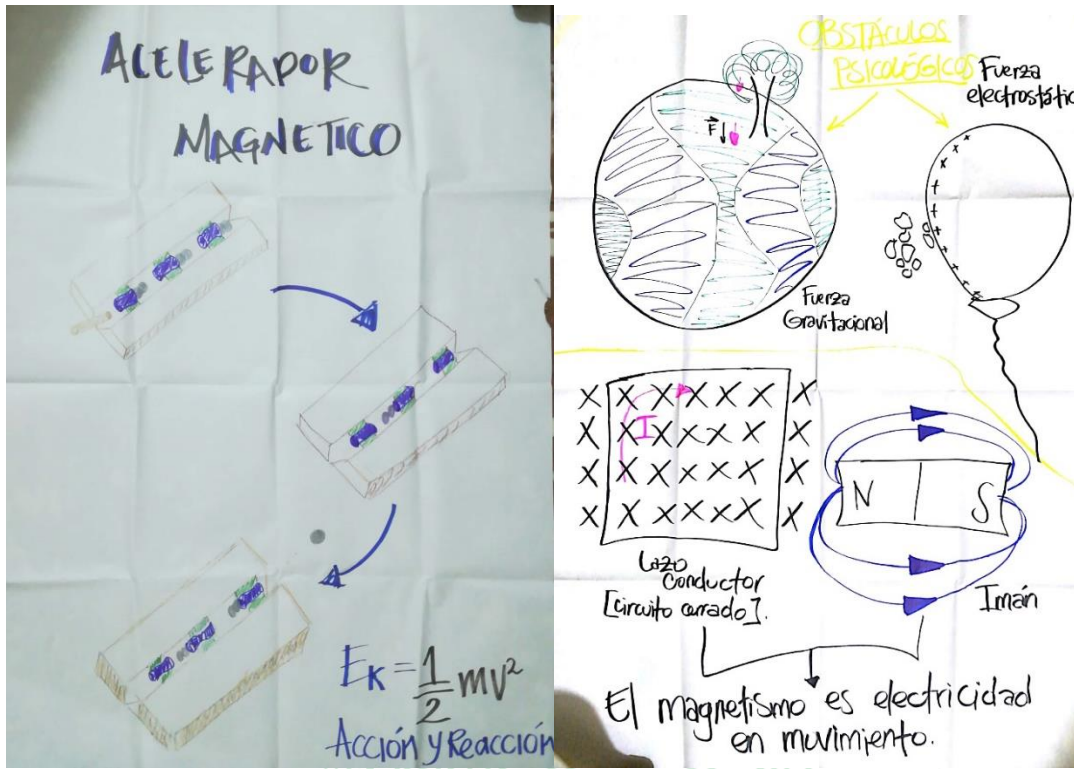 ACELERADOR
MAGNETICO
E_K = 1/2 mv²
Acción y Reacción
OBSTÁCULOS
PSICOLÓGICOS
Fuerza
electrostátic
F
+ + + + + + + + + +
Fuerza
Gravitacional
X X X X X X X
X X X X X X X
X X X X X X X
X X X X X X X
I
N S
Lazo
conductor
[circuito cerrado].
Imán
El magnetismo es electricidad
en muvimiento.